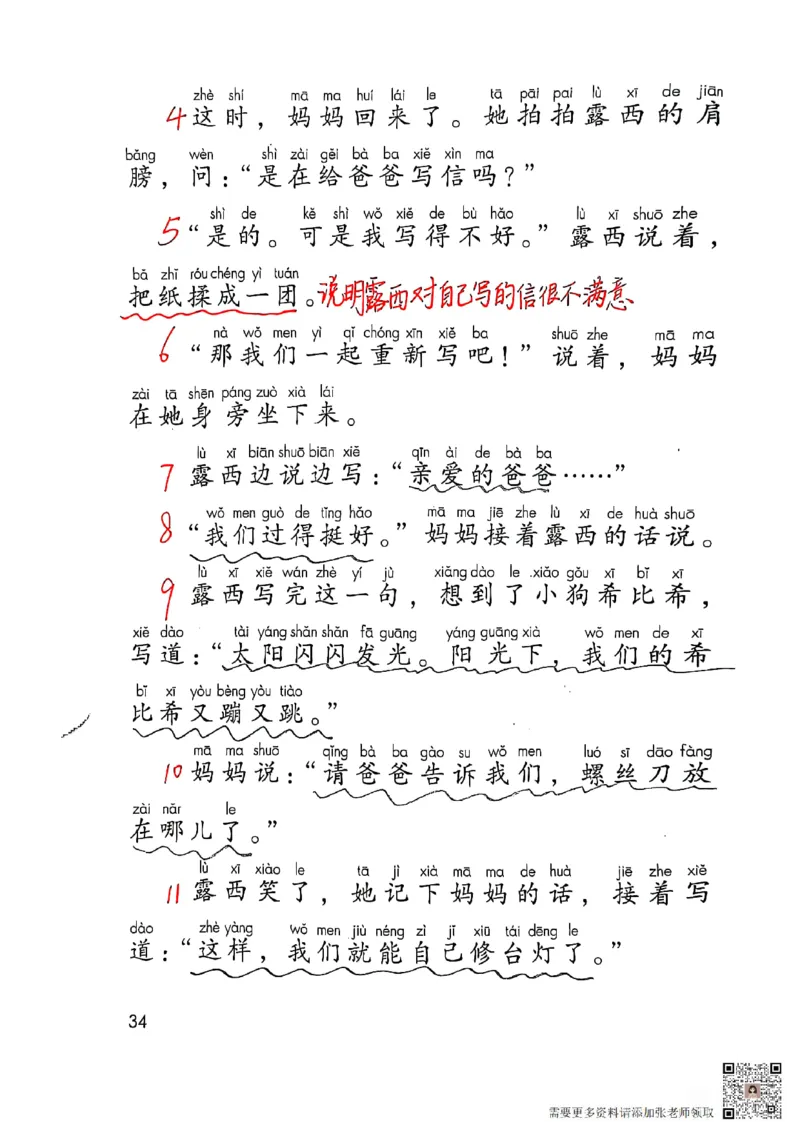 zhè shí mā ma huí lái le tā pāi pai lù xī de jiān
4这时，妈妈回来了。她拍拍露西的肩
bǎng wèn shì zài gěi bà ba xiě xìn ma
膀，问：“是在给爸爸写信吗？”
shì de kě shì wǒ xiě de bù hǎo lù xī shuō zhe
5“是的。可是我写得不好。”露西说着，
bǎ zhǐ róu chéng yì tuán
把纸揉成一团。说明露西对自己写的信很不满意
nà wǒ men yì qǐ chóng xīn xiě ba shuō zhe mā ma
6“那我们一起重新写吧！”说着，妈妈
zài tā shēn páng zuò xià lái
在她身旁坐下来。
lù xī biān shuō biān xiě qīn ài de bà ba
7露西边说边写：“亲爱的爸爸……”
wǒ men guò de tǐng hǎo mā ma jiē zhe lù xī de huà shuō
8“我们过得挺好。”妈妈接着露西的话说。
lù xī xiě wán zhè yí jù xiǎng dào le xiǎo gǒu xī bǐ xī
9露西写完这一句，想到了小狗希比希，
xiě dào tài yáng shǎn shǎn fā guāng yáng guāng xià wǒ men de xī
写道：“太阳闪闪发光。阳光下，我们的希
bǐ xī yòu bèng yòu tiào
比希又蹦又跳。”
mā ma shuō qǐng bà ba gào su wǒ men luó sī dāo fàng
10妈妈说：“请爸爸告诉我们，螺丝刀放
zài nǎr le
在哪儿了。”
lù xī xiào le tā jì xià mā ma de huà jiē zhe xiě
11露西笑了，她记下妈妈的话，接着写
dào zhè yàng wǒ men jiù néng zì jǐ xiū tái dēng le
道：“这样，我们就能自己修台灯了。”
34
需要更多资料请添加张老师领取